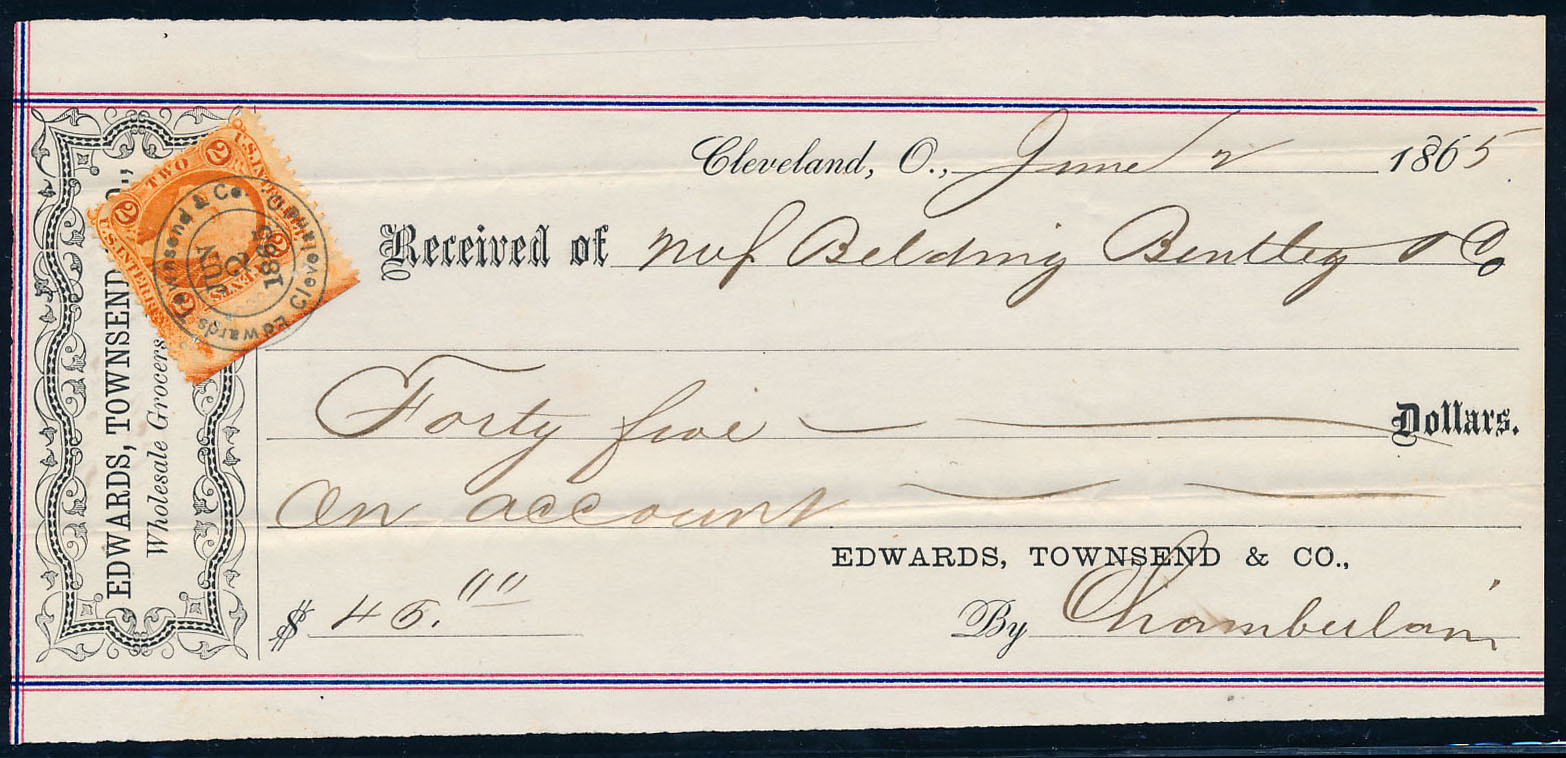 Cleveland, O., June 2 1865
Received of Belding Bentley & Co
Forty five Dollars.
on account
EDWARDS, TOWNSEND & CO.,
$ 45.00
By Chamberlain
EDWARDS, TOWNSEND O.,
Wholesale Grocers
U.S. INTER
TWO
2
2
2
CENTS
U.S. INTER
Edwards Townsend & Co. Cleveland O
JUN
2
1865